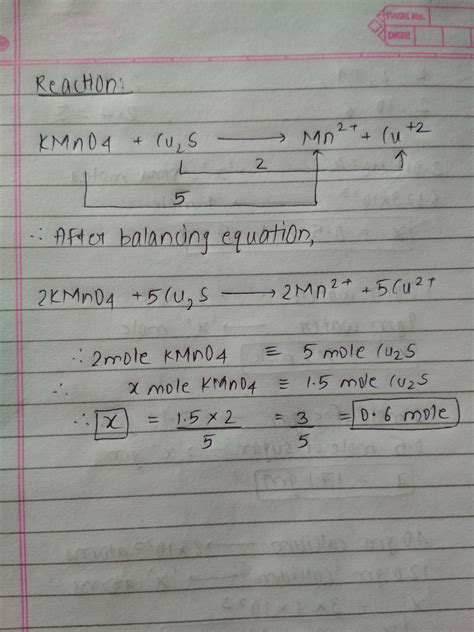 PAGE No.
DATE
Reaction:
KMnO4 + Cu₂S ⟶ Mn²⁺ + Cu⁺²
2
5
∴ After balancing equation,
2KMnO4 + 5Cu₂S ⟶ 2Mn²⁺ + 5Cu²⁺
∴ 2mole KMnO4 ≡ 5 mole Cu₂S
∴ x mole KMnO4 ≡ 1.5 mole Cu₂S
∴ x = 1.5 × 2 / 5 = 3 / 5 = 0.6 mole